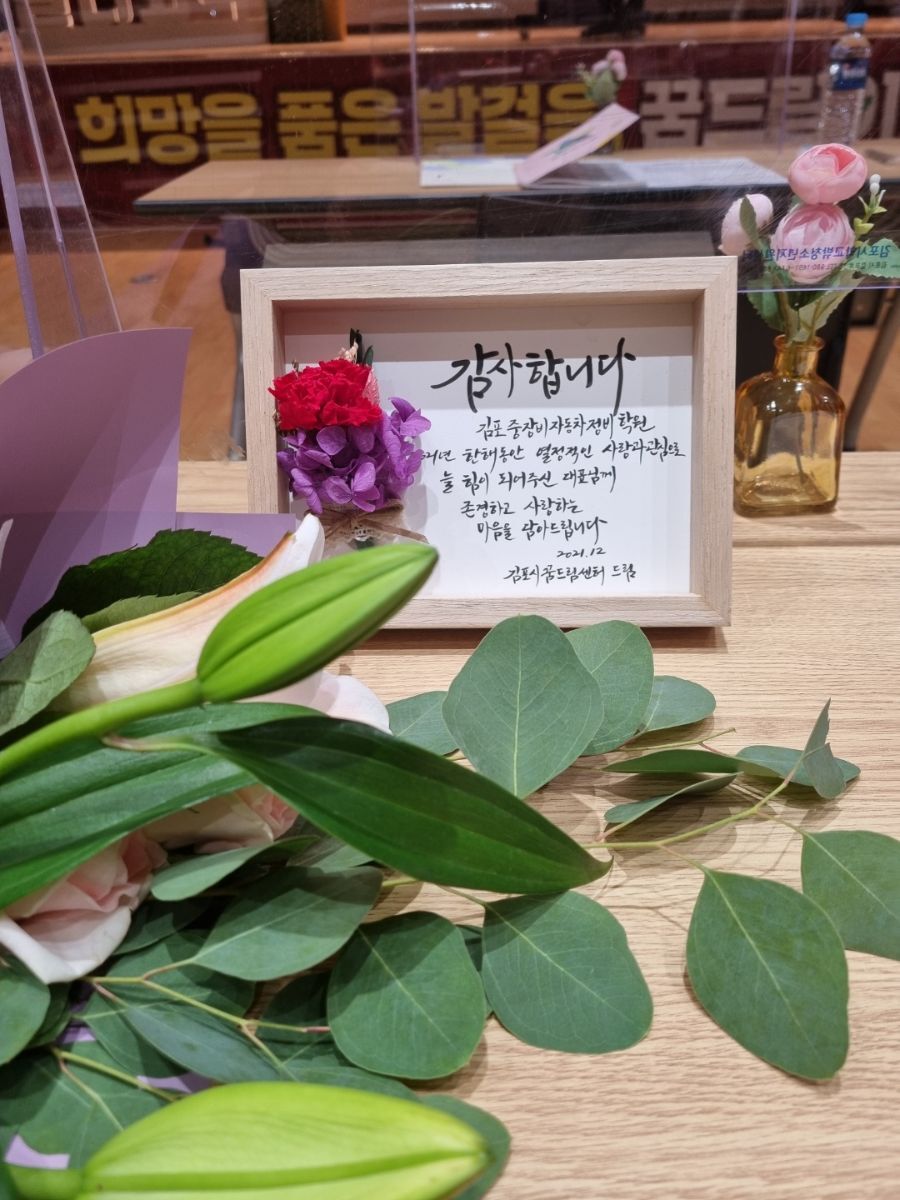 희망을 품은 발걸음 꿈드림이
감사합니다
김포중장비자동차정비학원
21년 한해동안 열정적인 사랑과관심으로
늘 힘이 되어주신 대표님께
존경하고 사랑하는
마음을 담아드립니다
2021.12
김포시꿈드림센터 드림
김포시학교밖청소년지원